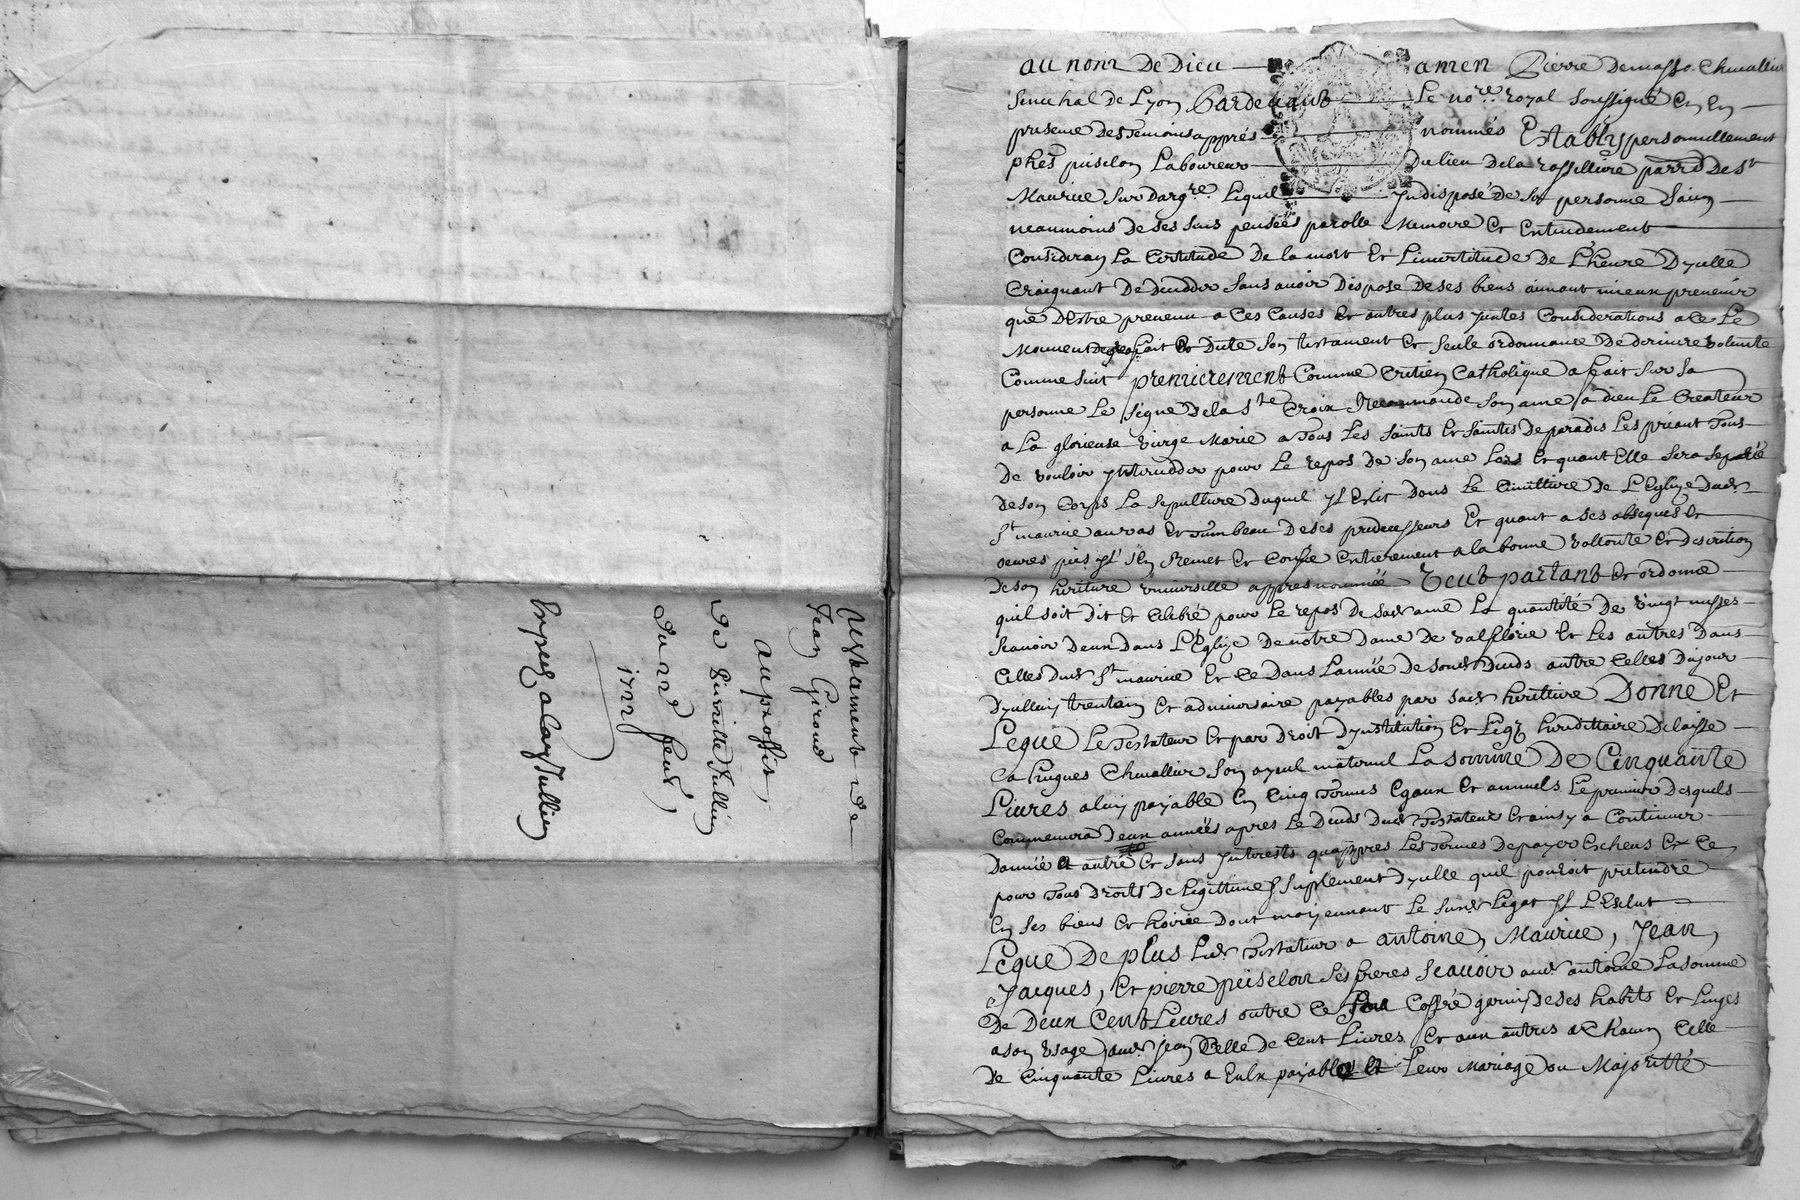 Testament de
Jean Giroud
au proffit,
de Pierrette Jullien
du 22e feuv.
1722
Expres a Cay Jullien
au nom De Dieu amen Pierre Demasso Chevallier
Senechal de Lyon Pardevant Le nore. royal soussigné En En
presence Des Temoins apprés nommés Estably personnellement
phes puiselon Laboureur Du lieu dela rossilliere parrd. De St
Maurice sur dargre. Lequel Indisposé de sa personne sain
neaumoins de ses sens penseés parolle Memoire Et Entendement
Consideran La Certitude De la mort Et Lincertitude De L'heure D'ycelle
Craignant De deceddér sans avoir Disposé De ses biens aimant mieux prevenir
que D'Estre prevenu a Ces Causes Et autres plus justes Considerations a Ce Le
Mouvent fait Et Dicte son testament Et seule ordonnance De derniere volonté
Comme suit premierement Comme Cretien Catholique a fait sur sa
personne Le signe De la Ste Croix Recommande son ame a dieu Le Createur
a La glorieuse vierge Marie a Tous Les saints Et saintes De paradis Les priant Tous
De vouloir jnterceddér pour Le repos De son ame Lors Et quant Elle sera separéé
de son Corps La sepulture Duquel jl Eslit Dans Le Cimittiere De L'Eglize Dud.
St. maurice au vas Et Tumbeau De ses predecesseurs Et quant a ses obseques Et
oeuvres pies jl s'En Remet Et Confie Entierement a la bonne vollonté Et discretion
De son heritiere universelle appres nommée veut partant Et ordonne
quil soit dit Et Celebré pour Le repos De sad. ame La quantité De vingt messes
scavoir deux Dans L'Eglize De notre Dame De valfleurie Et Les autres Dans
Celles Dud. St. maurice Et Ce Dans L'année De son d. Deceds autre Celles Du jour
D'ycelluy trentain Et adniversaire payables par sad. heritiere Donne Et
Legue Le Testateur Et par Droit D'ynstitution Et Legz hereditaire Delaisse
a hugues Chevallier son ayeul maternel La somme De Cinquante
Livres a luy payable En Cinq Termes Egaux Et annuels Le premier Desquels
Commencera Deux années apres Le Deceds Dud. Testateur Et ainsy a Continuer
D'année Et autre Et sans jnterests qu'appres Les Termes De payer Escheus Et Ce
pour Tous Droits De Legittime supplement D'ycelle quil pouroit pretendre
En ses biens Et hoirie Dont moyennant Le susd. Legat jl L'Esclut
Legue De plus Led. Testateur a antoine, Maurice, Jean,
Jacques, Et pierre puiselon ses freres scavoir aud. antoine La somme
De Deux Cent Livres outre Ce son Coffre garny de ses habits Et Linges
a son Usage aud. Jean Celle de Cent Livres Et aux autres a Chacun Celle
De Cinquante Livres a Eulx payable Et Leur Mariage ou Majoritté